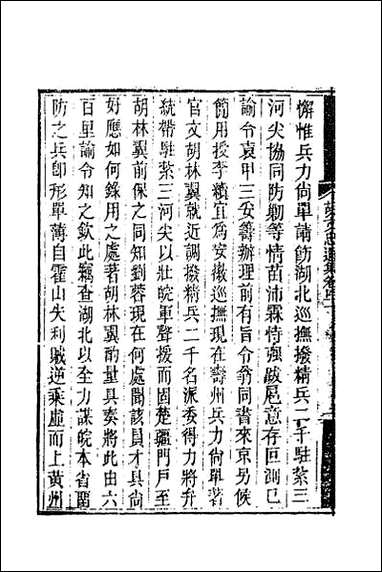 懈惟兵力尙單請飭湖北巡撫撥精兵二千駐紮三
河尖協同防勦等情苗沛霖恃强跋扈意存叵測已
諭令袁甲三妥籌辦理前有旨令翁同書來京另候
簡用授李續宜爲安徽巡撫現在壽州兵力尙單著
官文胡林翼就近調撥精兵二千名派委得力將弁
統帶駐紮三河尖以壯皖軍聲援而固楚疆門戶至
胡林翼前保之同知劉蓉現在何處聞該員才具尙
好應如何錄用之處著胡林翼酌量具奏將此由六
百里諭令知之欽此竊查湖北以全力謀皖本省留
防之兵卽形單薄自霍山失利賊逆乘虛而上黃州
胡文忠公遺集卷四十